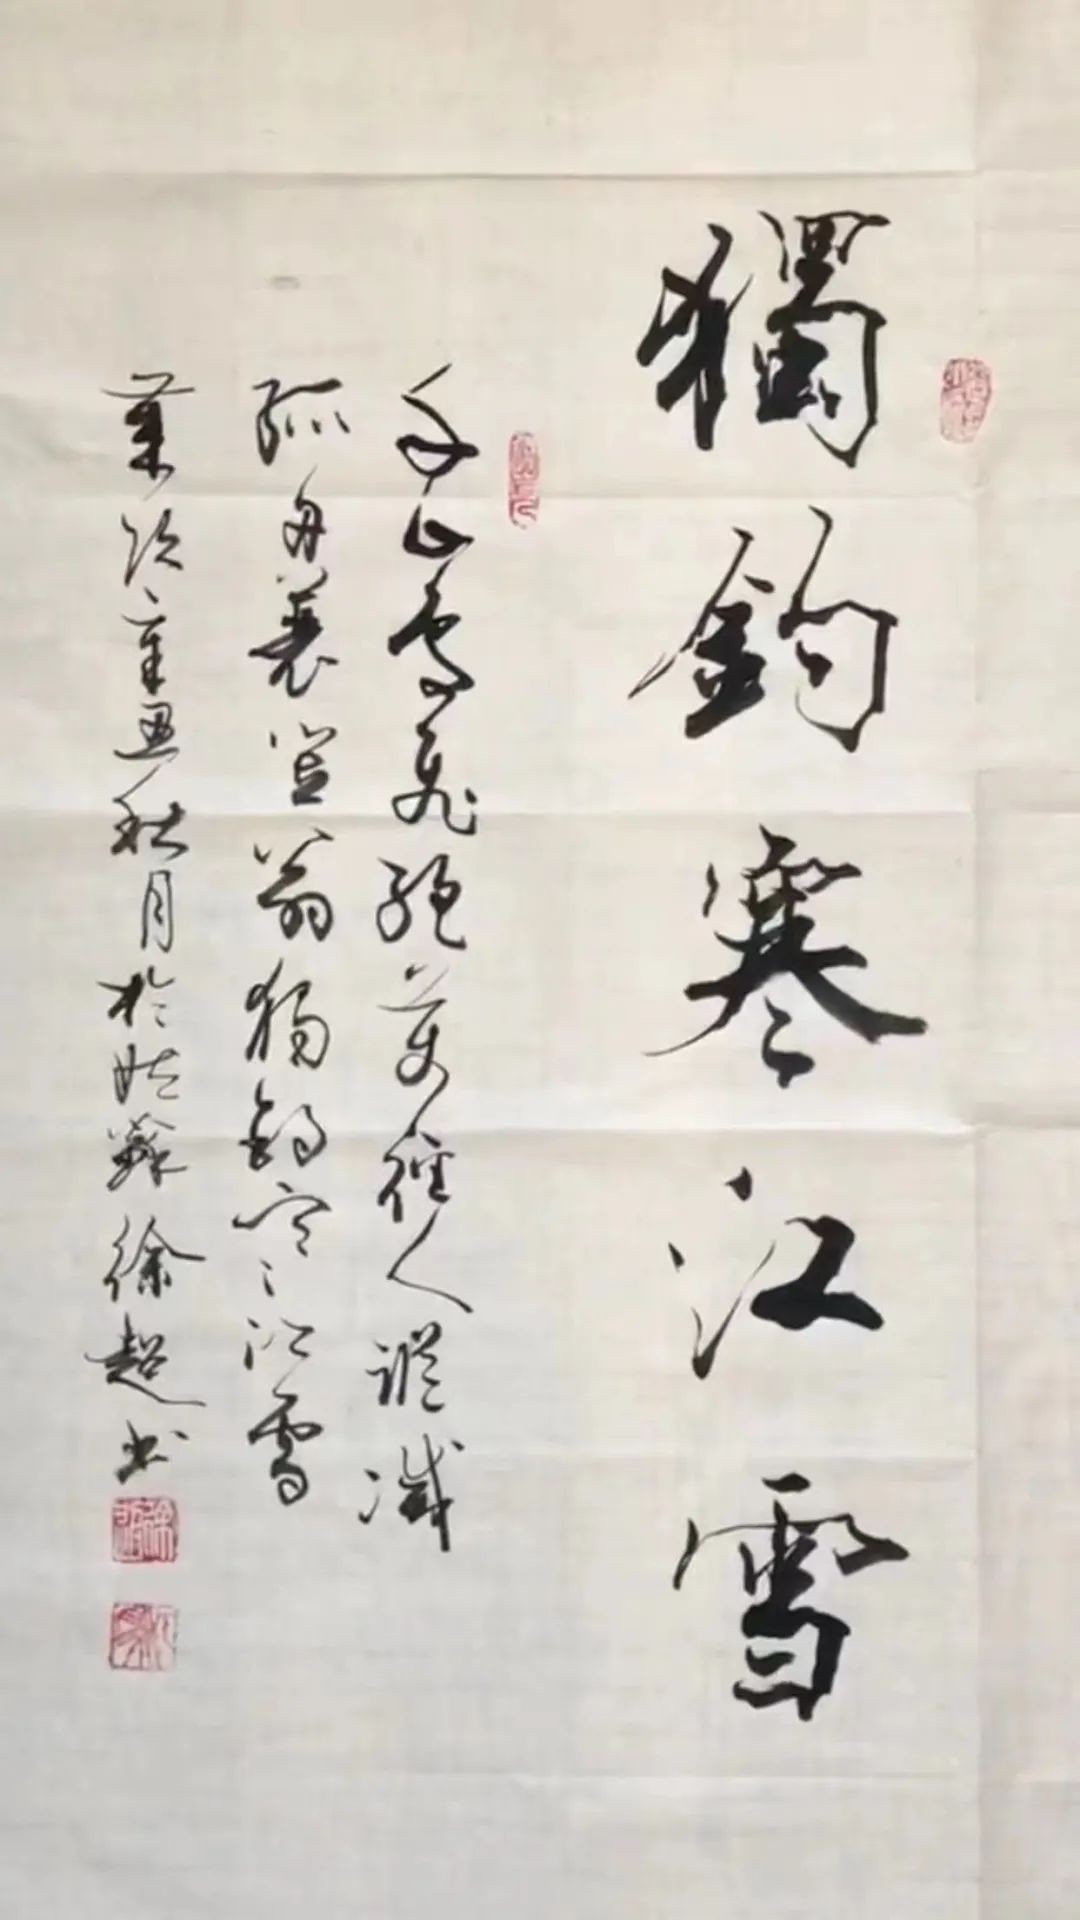 獨釣寒江雪
千山鳥飛絕萬徑人蹤滅
孤舟蓑笠翁獨釣寒江雪
歲次辛丑秋月於姑蘇徐超书